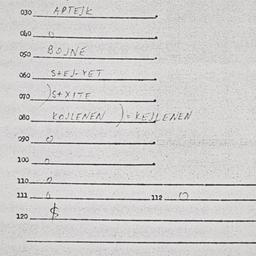 030 APTEJK
040 0
050 BOJNÉ
060 S+EJ-YET
070 )S+XITE
080 KOJLENEN ) = KEJLENEN
090 0
100 0
110 0
111 0 112 0
120 $